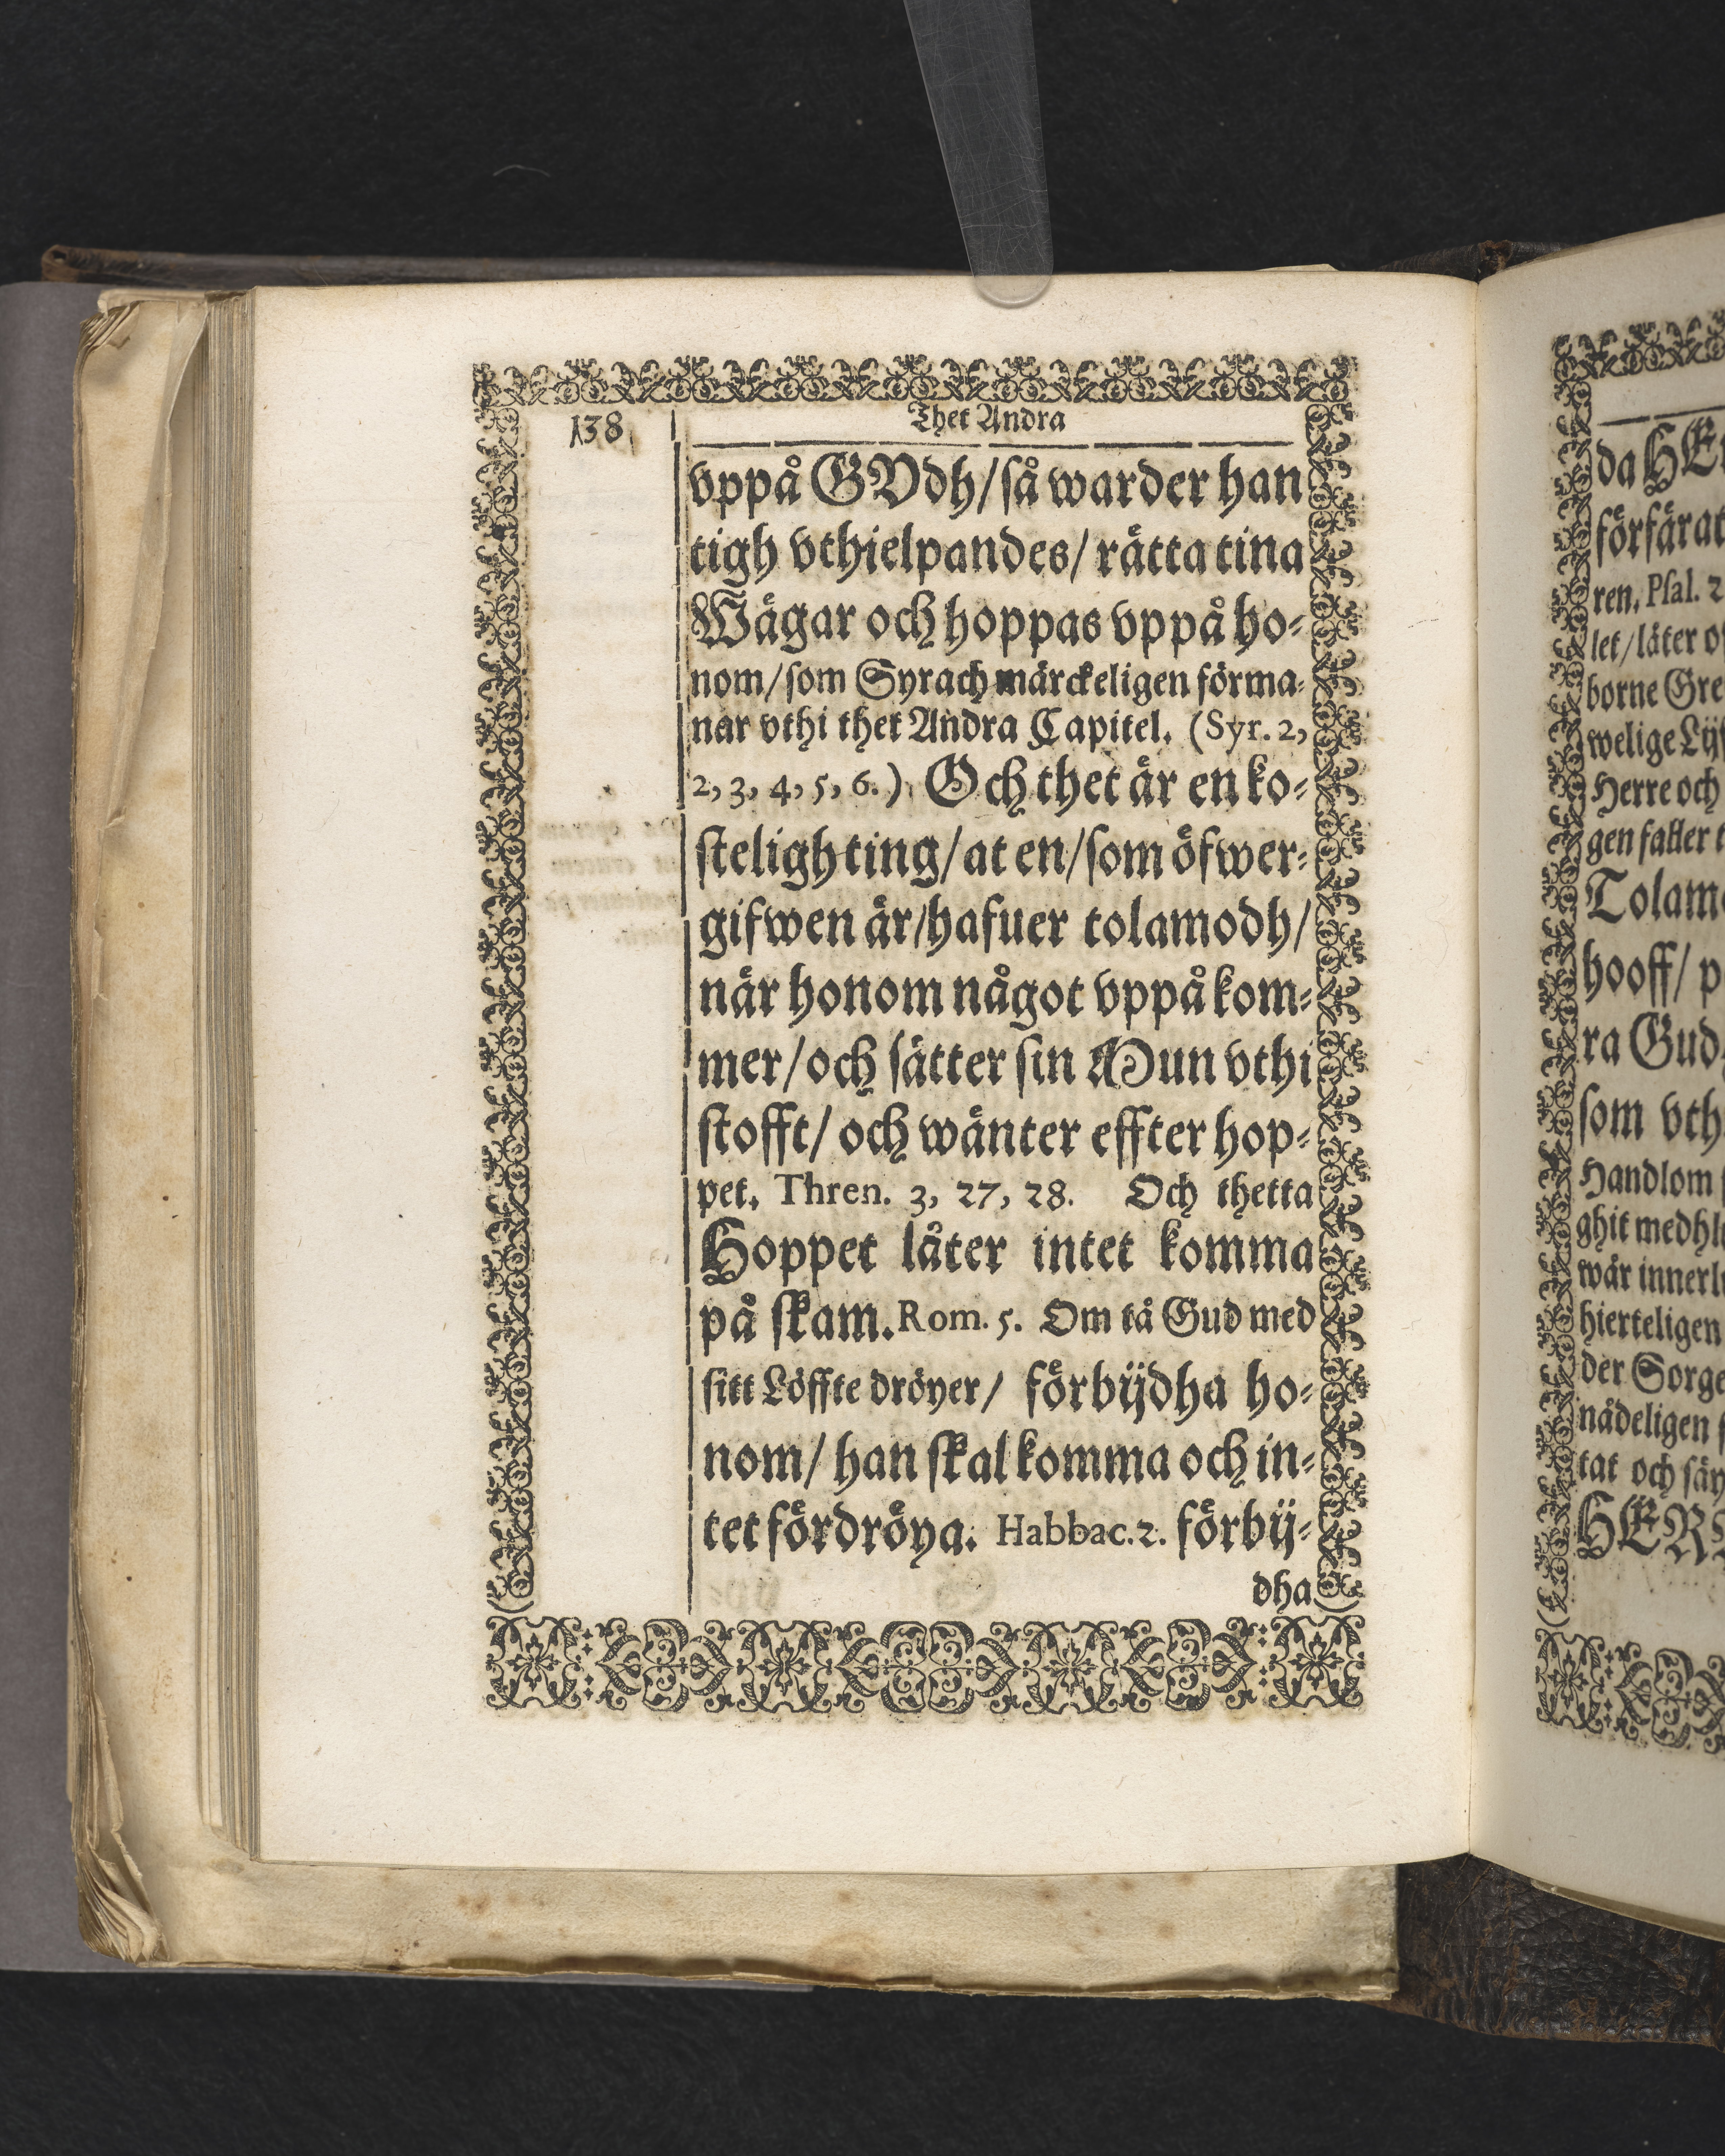 138
Thet Andra
vppå GVdh/så warder han
tigh vthielpandes/rätta tina
Wägar och hoppas vppå ho-
nom/som Syrach märckeligen förma-
nar vthi thet Andra Capitel. (Syr. 2,
2, 3, 4, 5, 6.) Och thet är en ko-
steligh ting/at en/som öfwer-
gifwen är/hafuer tolamodh/
när honom något vppåkom-
mer/och sätter sin Mun vthi
stofft/och wänter effter hop-
pet. Thren. 3, 27, 28. Och thetta
Hoppet låter intet komma
på skam. Rom. 5. Om tå Gud med
sitt Löffte dröyer/ förbijdha ho-
nom/han skal komma och in-
tet fördröya. Habbac. 2. förbij-
dha
da
förfärat
ren. Psal. 2
let/låter
borne
welige
Herre och
gen faller
hooff/
ra Gud
som
Handlom
ghit
wår
hierteligen
der
nådeligen
tat och